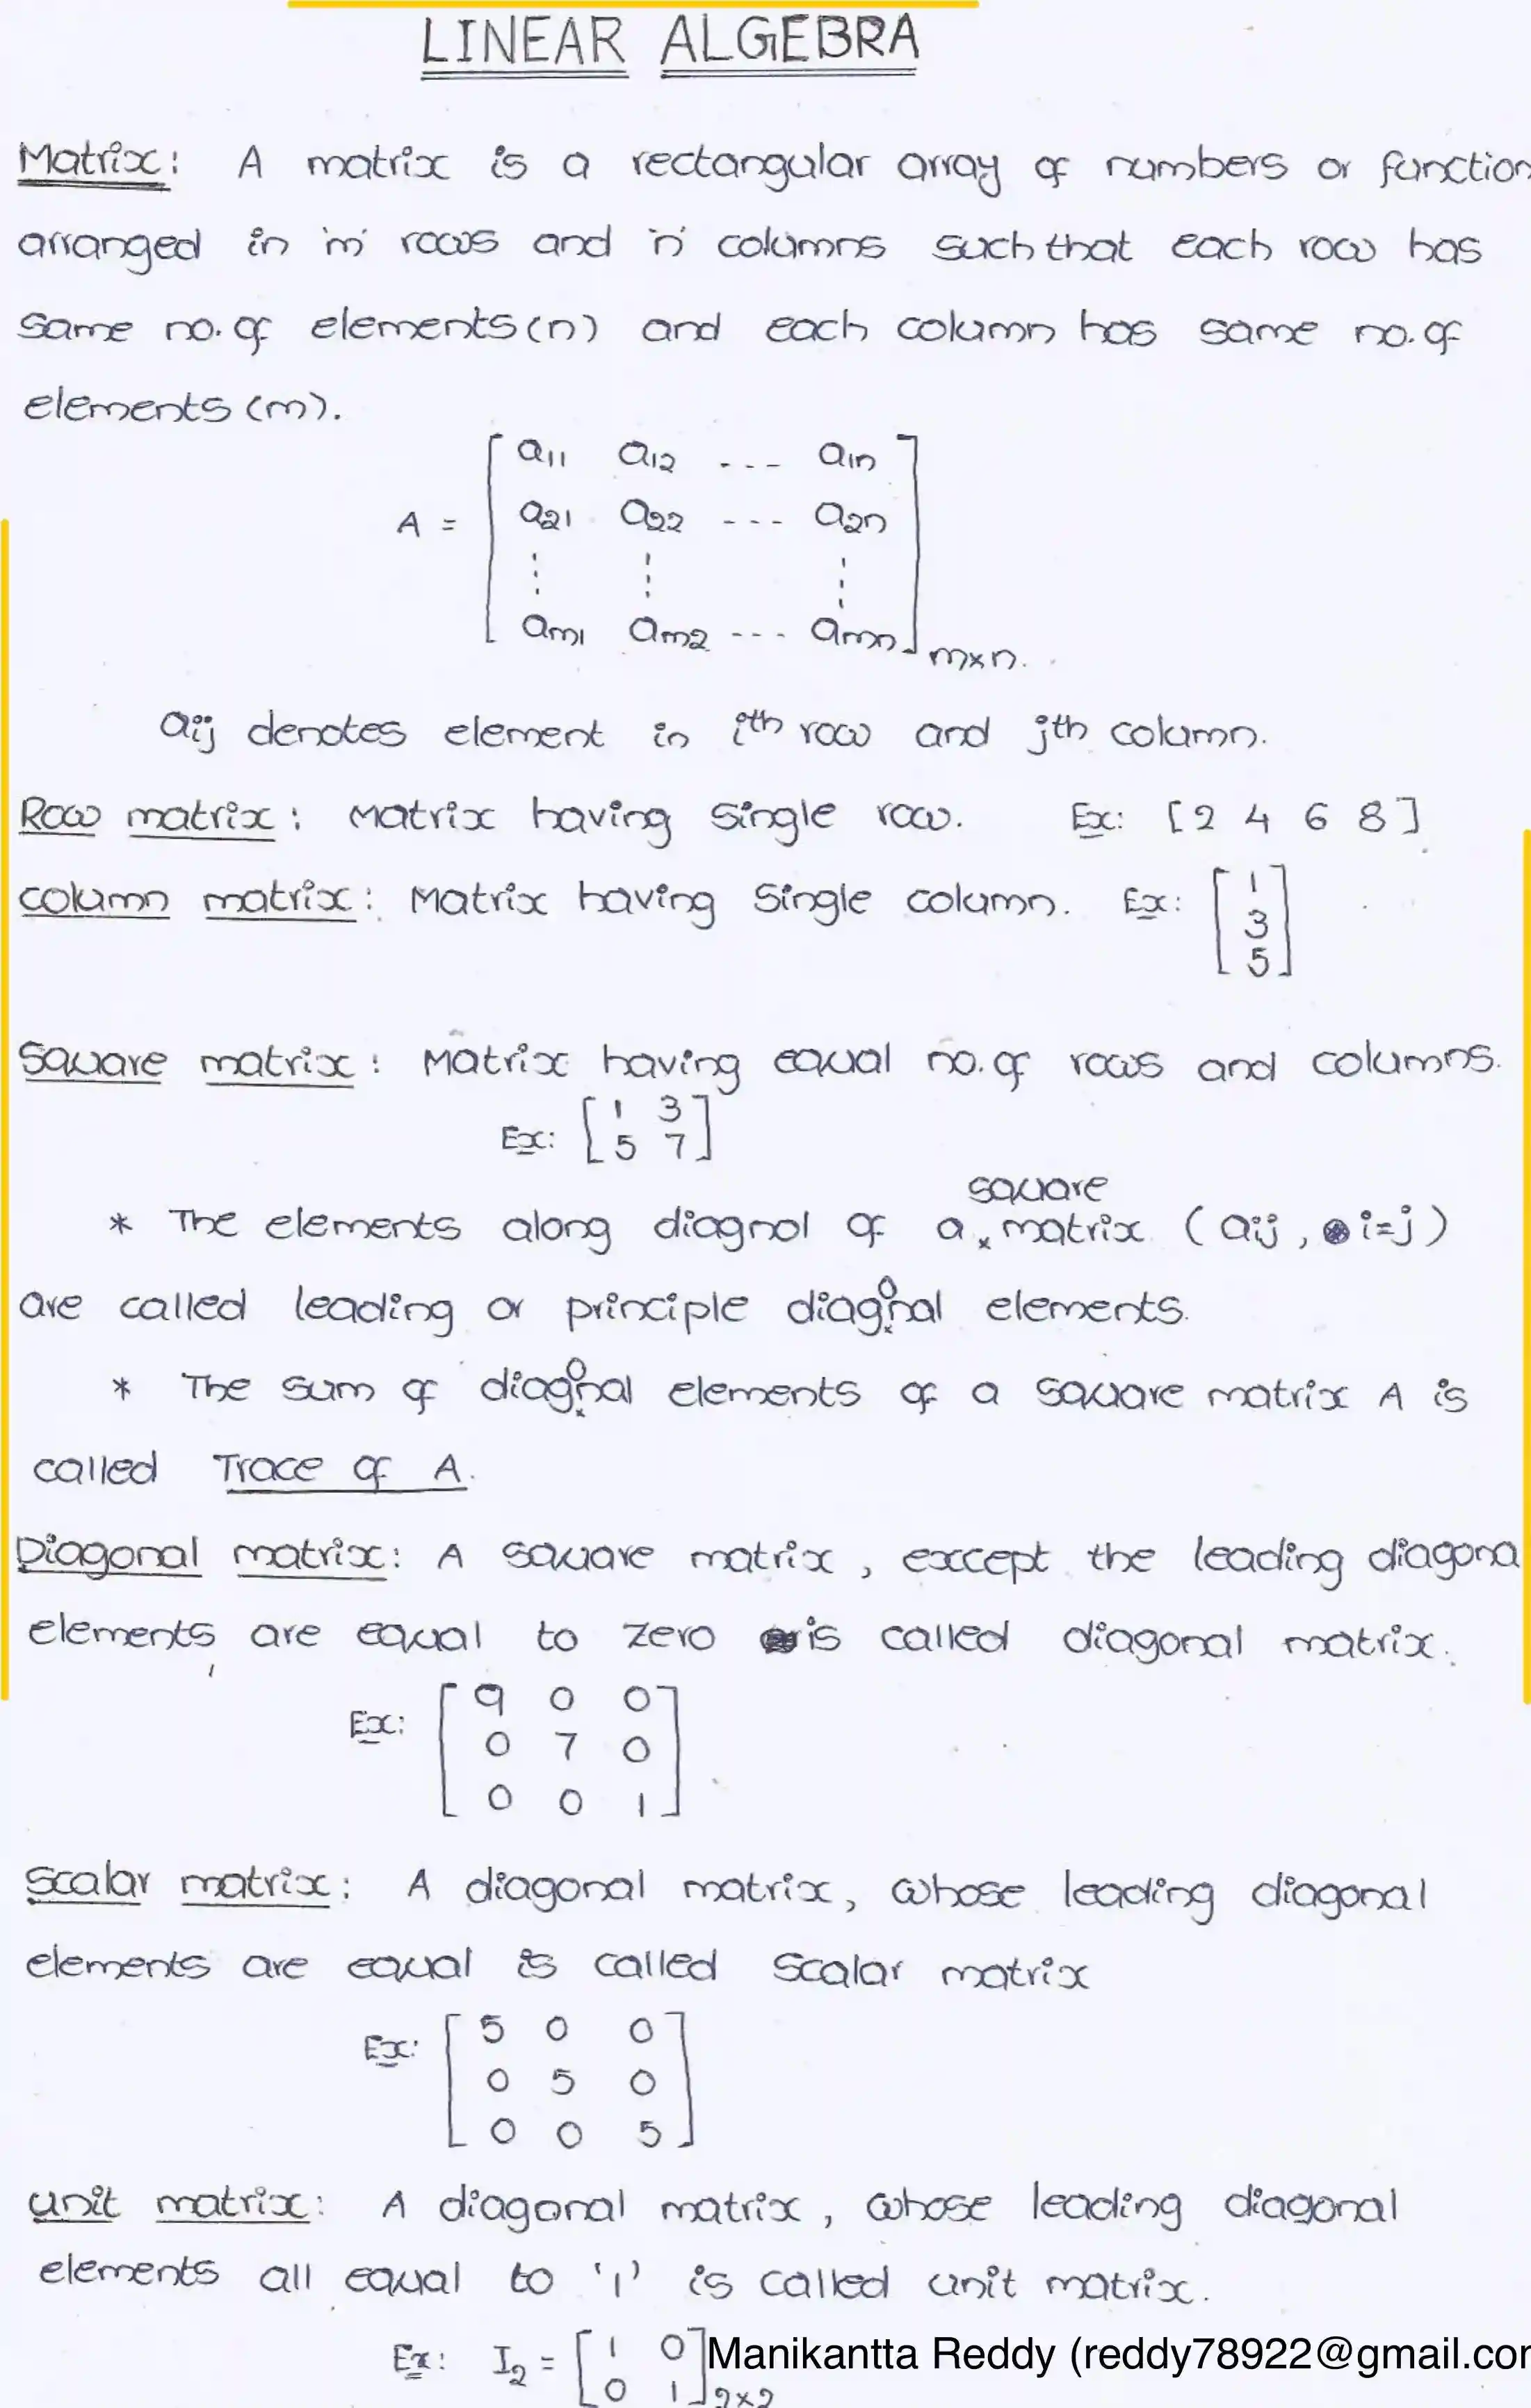 LINEAR ALGEBRA
Matrix: A matrix is a rectangular array of numbers or function
arranged in 'm' rows and 'n' columns such that each row has
same no. of elements (n) and each column has same no. of
elements (m).
a11 a12 --- a1n
A = a21 a22 --- a2n
⋮ ⋮ ⋮
am1 am2 --- amn
m×n.
aij denotes element in ith row and jth column.
Row matrix: Matrix having single row. Ex: [2 4 6 8]
column matrix: Matrix having single column. Ex: [1
3
5]
Square matrix: Matrix having equal no. of rows and columns.
Ex: [1 3
5 7]
square
* The elements along diagnol of a x matrix (aij, i=j)
are called leading or principle diagonal elements.
* The sum of diagonal elements of a square matrix A is
called Trace of A.
Diagonal matrix: A square matrix, except the leading diagona
elements, are equal to zero is called diagonal matrix.
Ex: [9 0 0
0 7 0
0 0 1]
Scalar matrix: A diagonal matrix, whose leading diagonal
elements are equal is called scalar matrix
Ex: [5 0 0
0 5 0
0 0 5]
unit matrix: A diagonal matrix, whose leading diagonal
elements all equal to '1' is called unit matrix.
Ex: I2 = [1 0
0 1]2×2
Manikantta Reddy (reddy78922@gmail.com